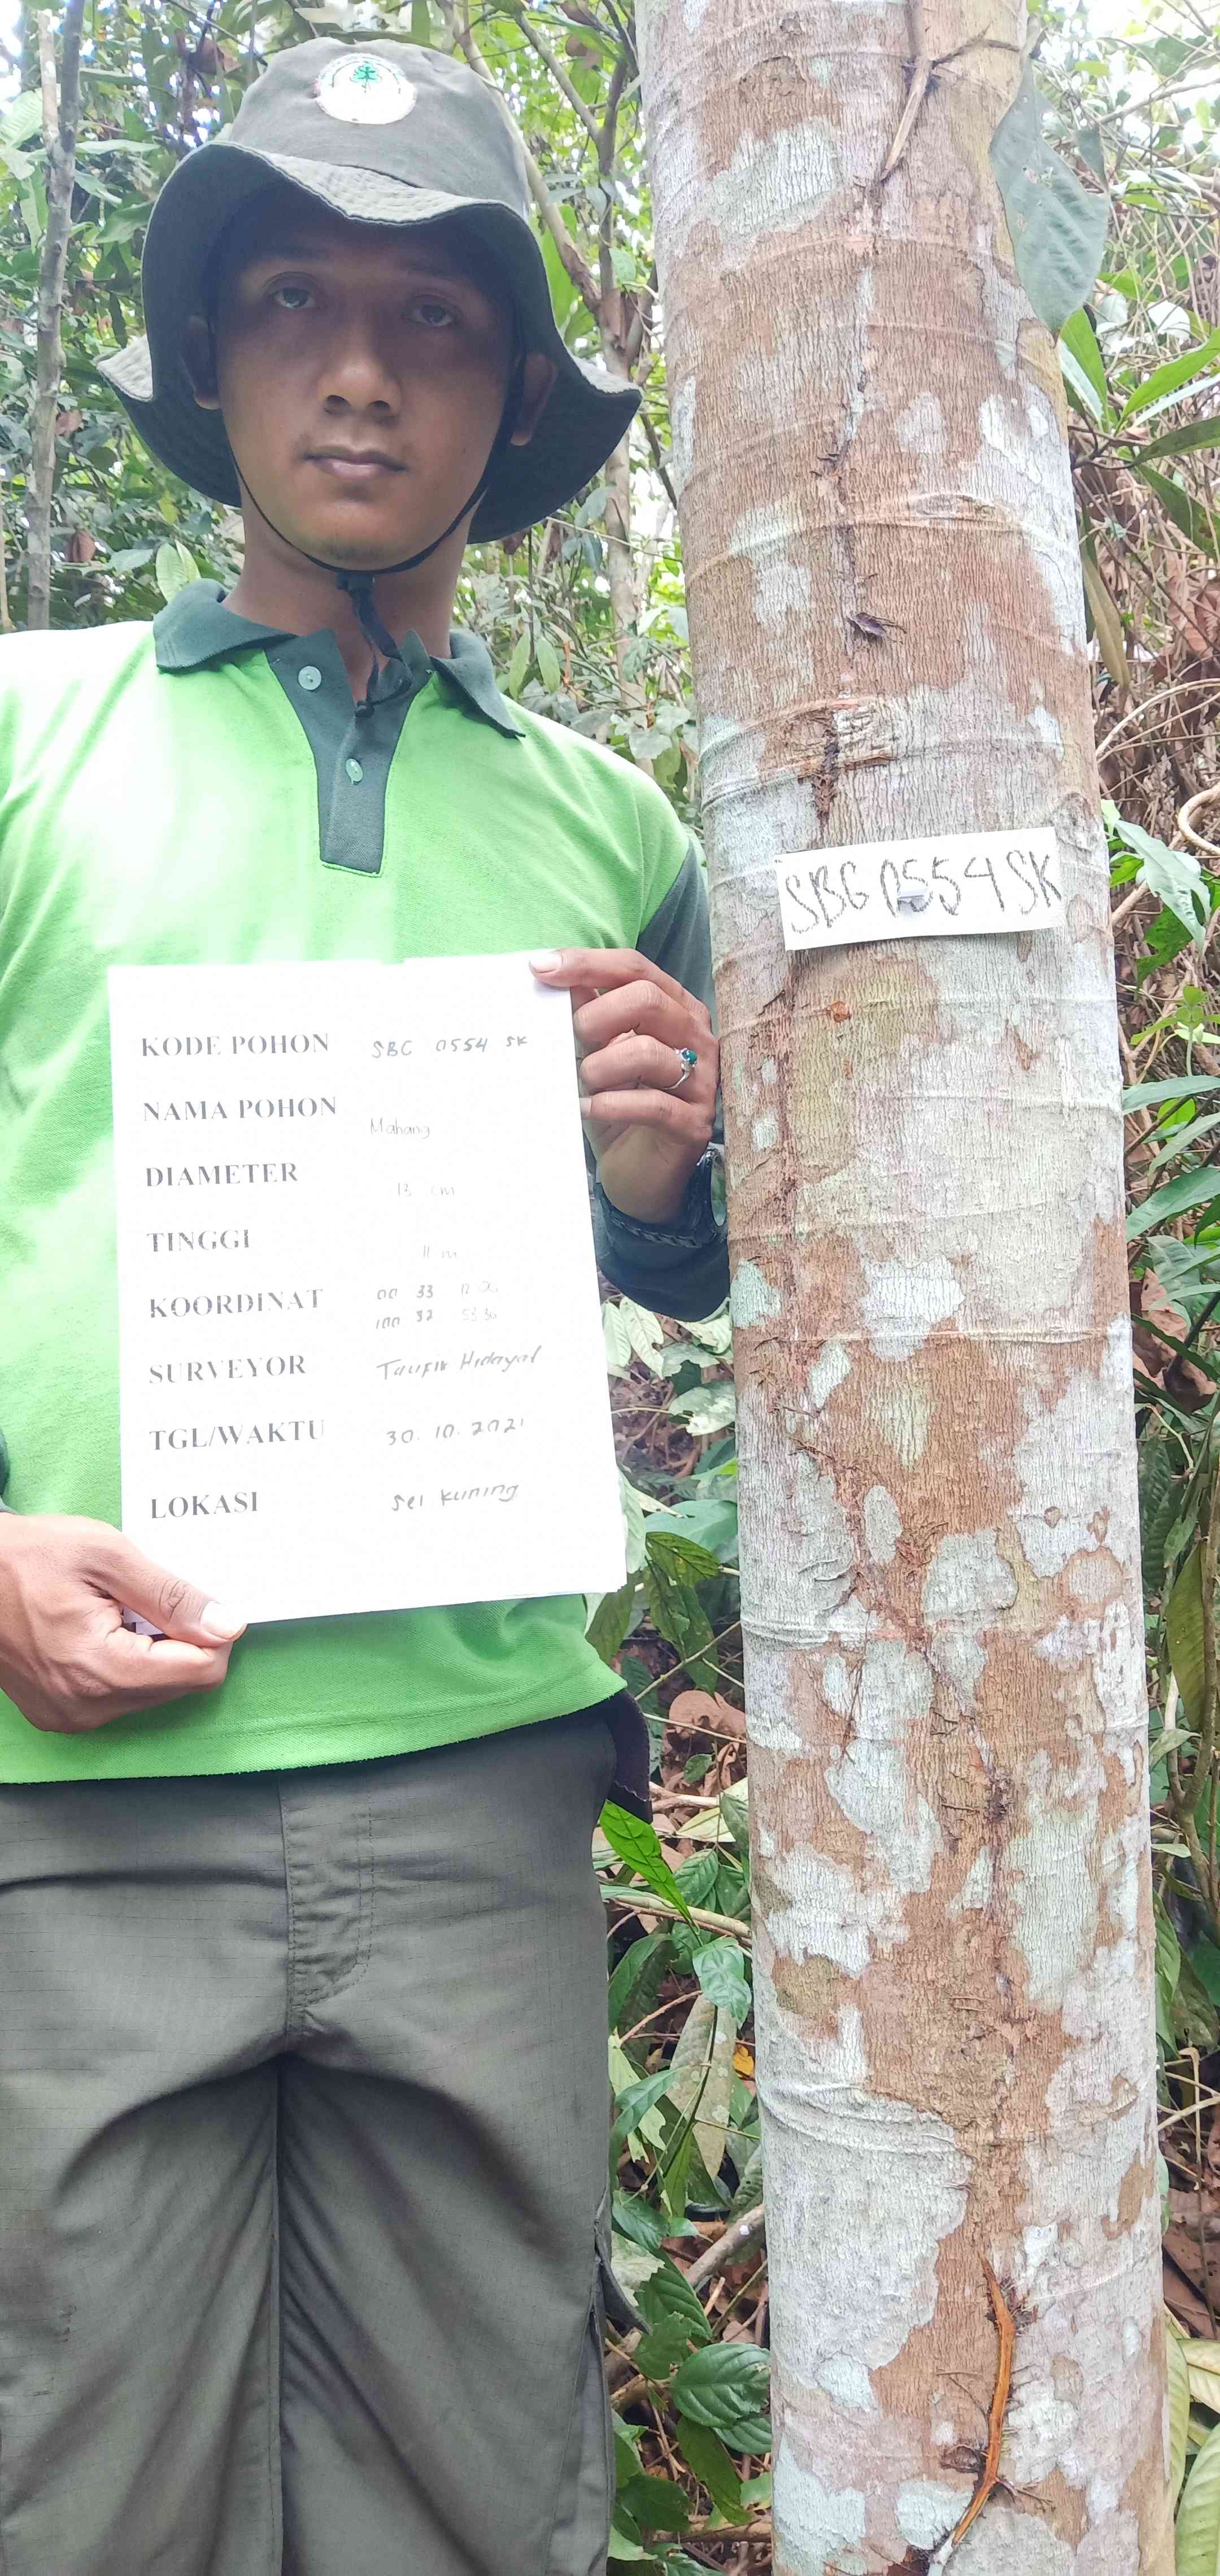 SBG 0554 SK
KODE POHON SBG 0554 SK
NAMA POHON Mahang
DIAMETER 13 cm
TINGGI 11 m
KOORDINAT 00 33 12.06
100 32 53.30
SURVEYOR Taufik Hidayat
TGL/WAKTU 30.10.2021
LOKASI Sei Kuning